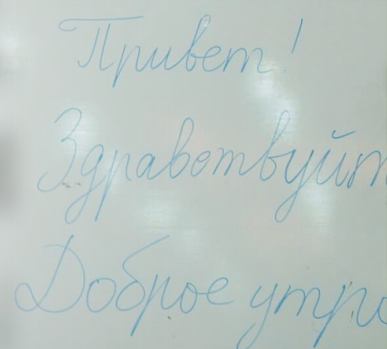 Привет!
Здравствуйт
Доброе утро